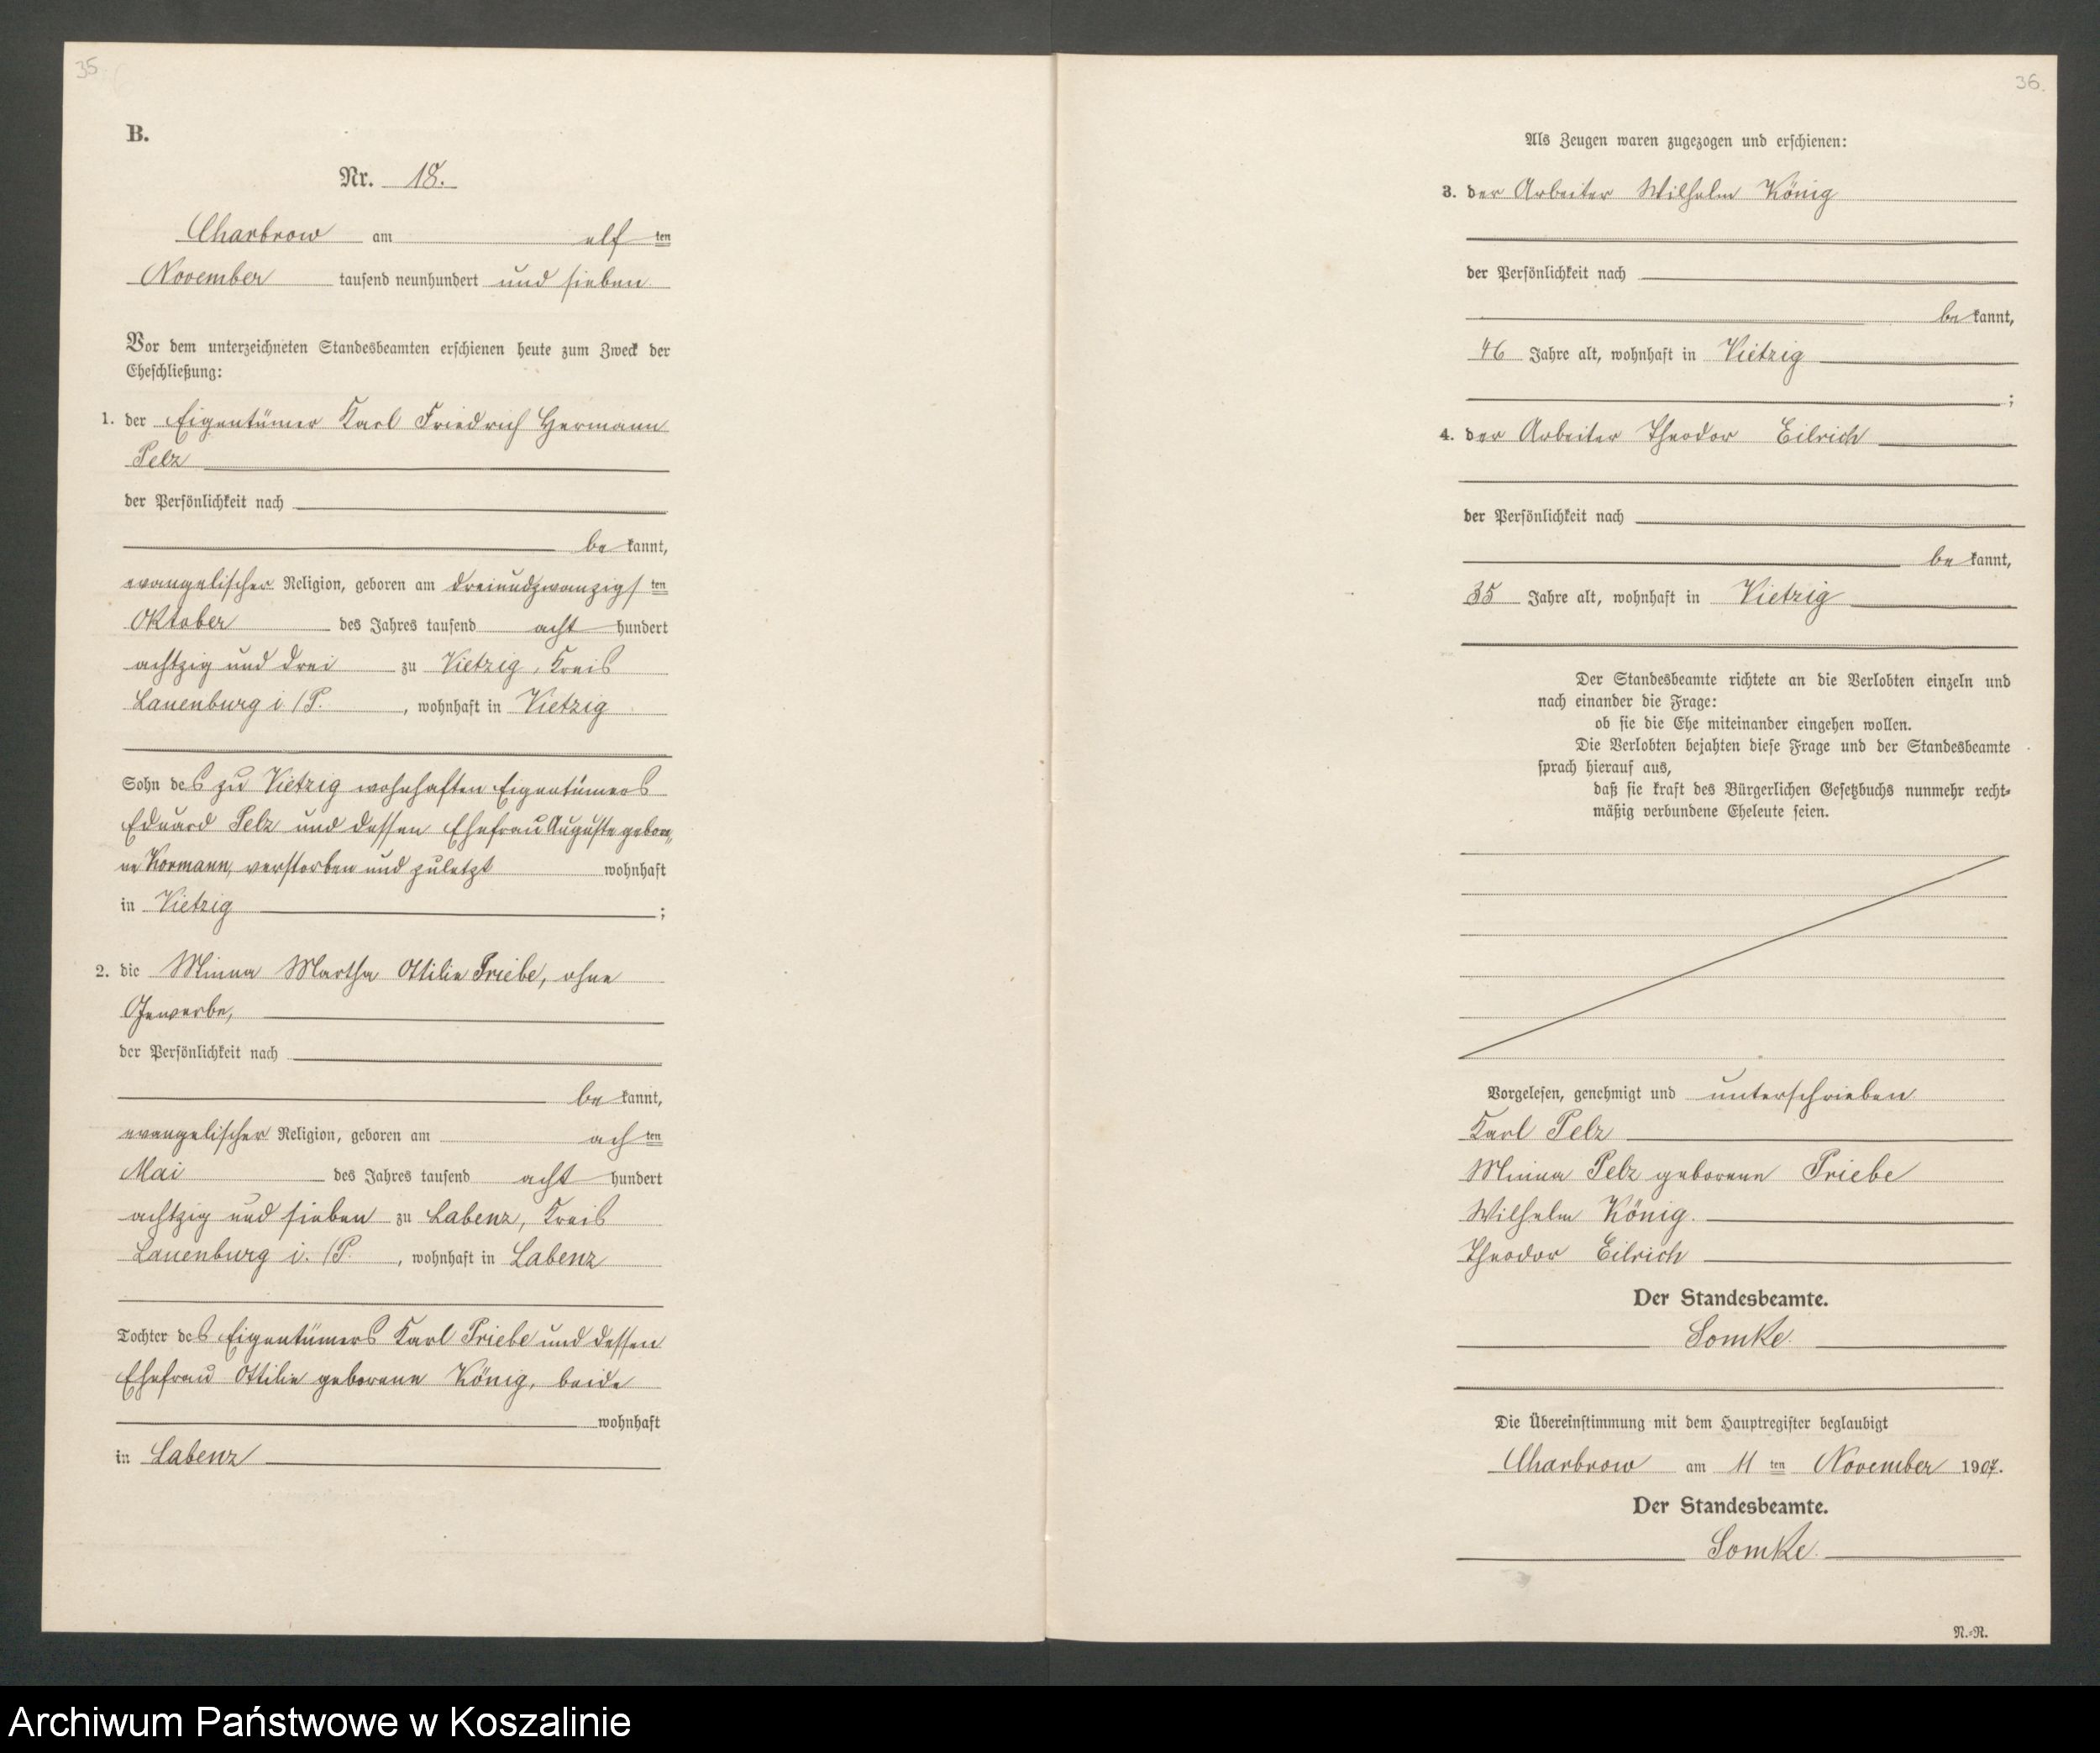 35
B.
Nr. 18.
Charbrow am elf ten
November tausend neunhundert und sieben
Vor dem unterzeichneten Standesbeamten erschienen heute zum Zweck der
Eheschließung:
1. der Eigentümer Karl Friedrich Hermann
Pelz
der Persönlichkeit nach
be kannt,
evangelischer Religion, geboren am dreiundzwanzigsten
Oktober des Jahres tausend acht hundert
achtzig und drei zu Vietzig, Kreis
Lauenburg i/P. , wohnhaft in Vietzig
Sohn des zu Vietzig wohnhaften Eigentümers
Eduard Pelz und dessen Ehefrau Auguste gebore„
ne Kormann, verstorben und zuletzt wohnhaft
in Vietzig ;
2. die Minna Martha Ottilie Priebe, ohne
Gewerbe,
der Persönlichkeit nach
be kannt,
evangelischer Religion, geboren am ach ten
Mai des Jahres tausend acht hundert
achtzig und sieben zu Labenz, Kreis
Lauenburg i. /P. , wohnhaft in Labenz
Tochter des Eigentümers Karl Priebe und dessen
Ehefrau Ottilie geborene König, beide
wohnhaft
in Labenz
36.
Als Zeugen waren zugezogen und erschienen:
3. der Arbeiter Wilhelm König
der Persönlichkeit nach
be kannt,
46 Jahre alt, wohnhaft in Vietzig
;
4. der Arbeiter Theodor Eilrich
der Persönlichkeit nach
be kannt,
35 Jahre alt, wohnhaft in Vietzig
Der Standesbeamte richtete an die Verlobten einzeln und
nach einander die Frage:
ob sie die Ehe miteinander eingehen wollen.
Die Verlobten bejahten diese Frage und der Standesbeamte
sprach hierauf aus,
daß sie kraft des Bürgerlichen Gesetzbuchs nunmehr recht-
mäßig verbundene Eheleute seien.
Vorgelesen, genehmigt und unterschrieben
Karl Pelz
Minna Pelz geborene Priebe
Wilhelm König.
Theodor Eilrich
Der Standesbeamte.
Somke.
Die Übereinstimmung mit dem Hauptregister beglaubigt
Charbrow am 11 ten November 1907.
Der Standesbeamte.
Somke.
N.-N.
Archiwum Państwowe w Koszalinie